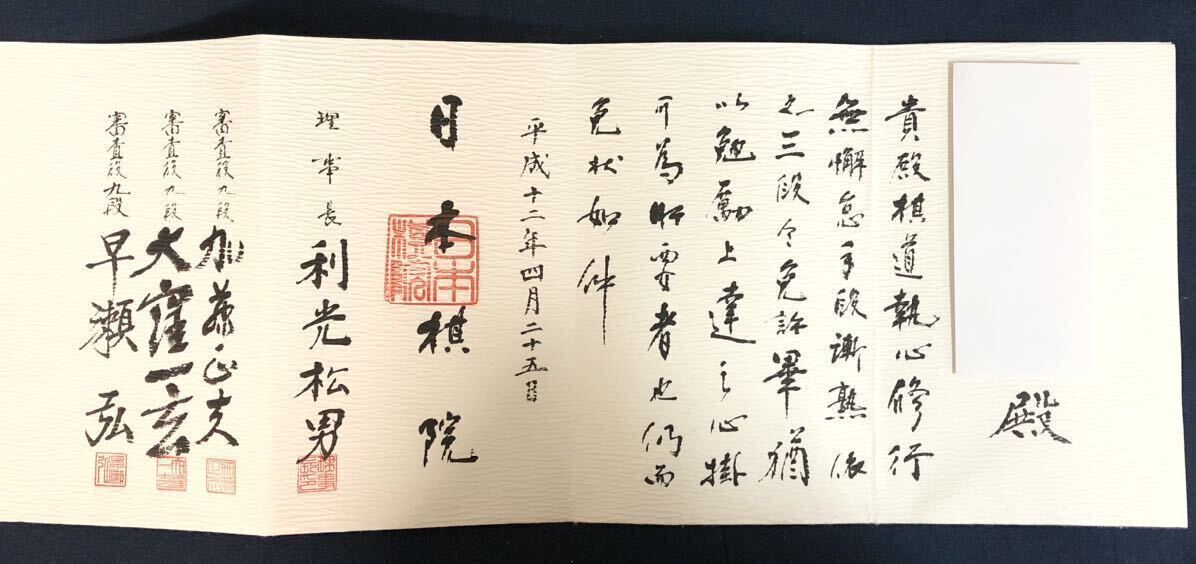 殿
貴殿棋道執心修行
無懈怠手段漸熟依
之三段令免許畢猶
以勉励上達之心掛
可為肝要者也仍而
免状如件
平成十二年四月二十五日
日本棋院
理事長 利光松男
審査役九段 加藤正夫
審査役九段 大窪一玄
審査役九段 早瀬弘